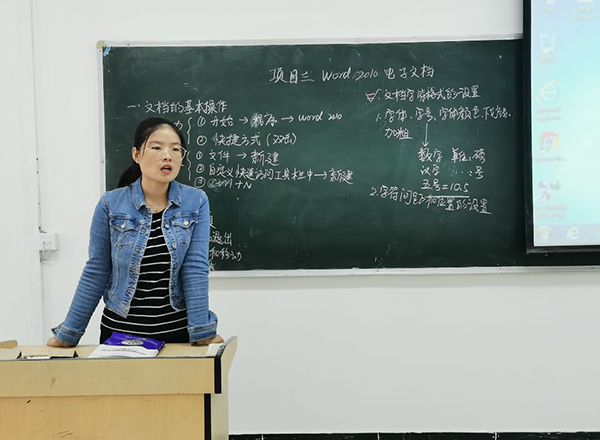 项目三 Word 2010 电子文档
一、文档的基本操作
① 开始 → 程序 → word 2010
② 快捷方式 (双击)
③ 文件 → 新建
④ 自定义快速访问工具栏中 → 新建
⑤ +N
退出
文档字符格式的设置
1. 字体、字号、字体颜色、下划线、
加粗
数字 磅
汉字 号
五号=10.5
2. 字符间距和位置的设置